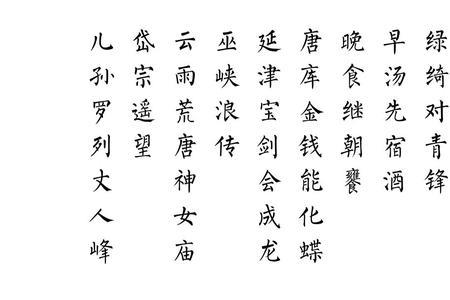 绿绮对青锋
早汤先宿酒
晚食继朝饔
唐库金钱能化蝶
延津宝剑会成龙
巫峡浪传
云雨荒唐神女庙
岱宗遥望
儿孙罗列丈人峰